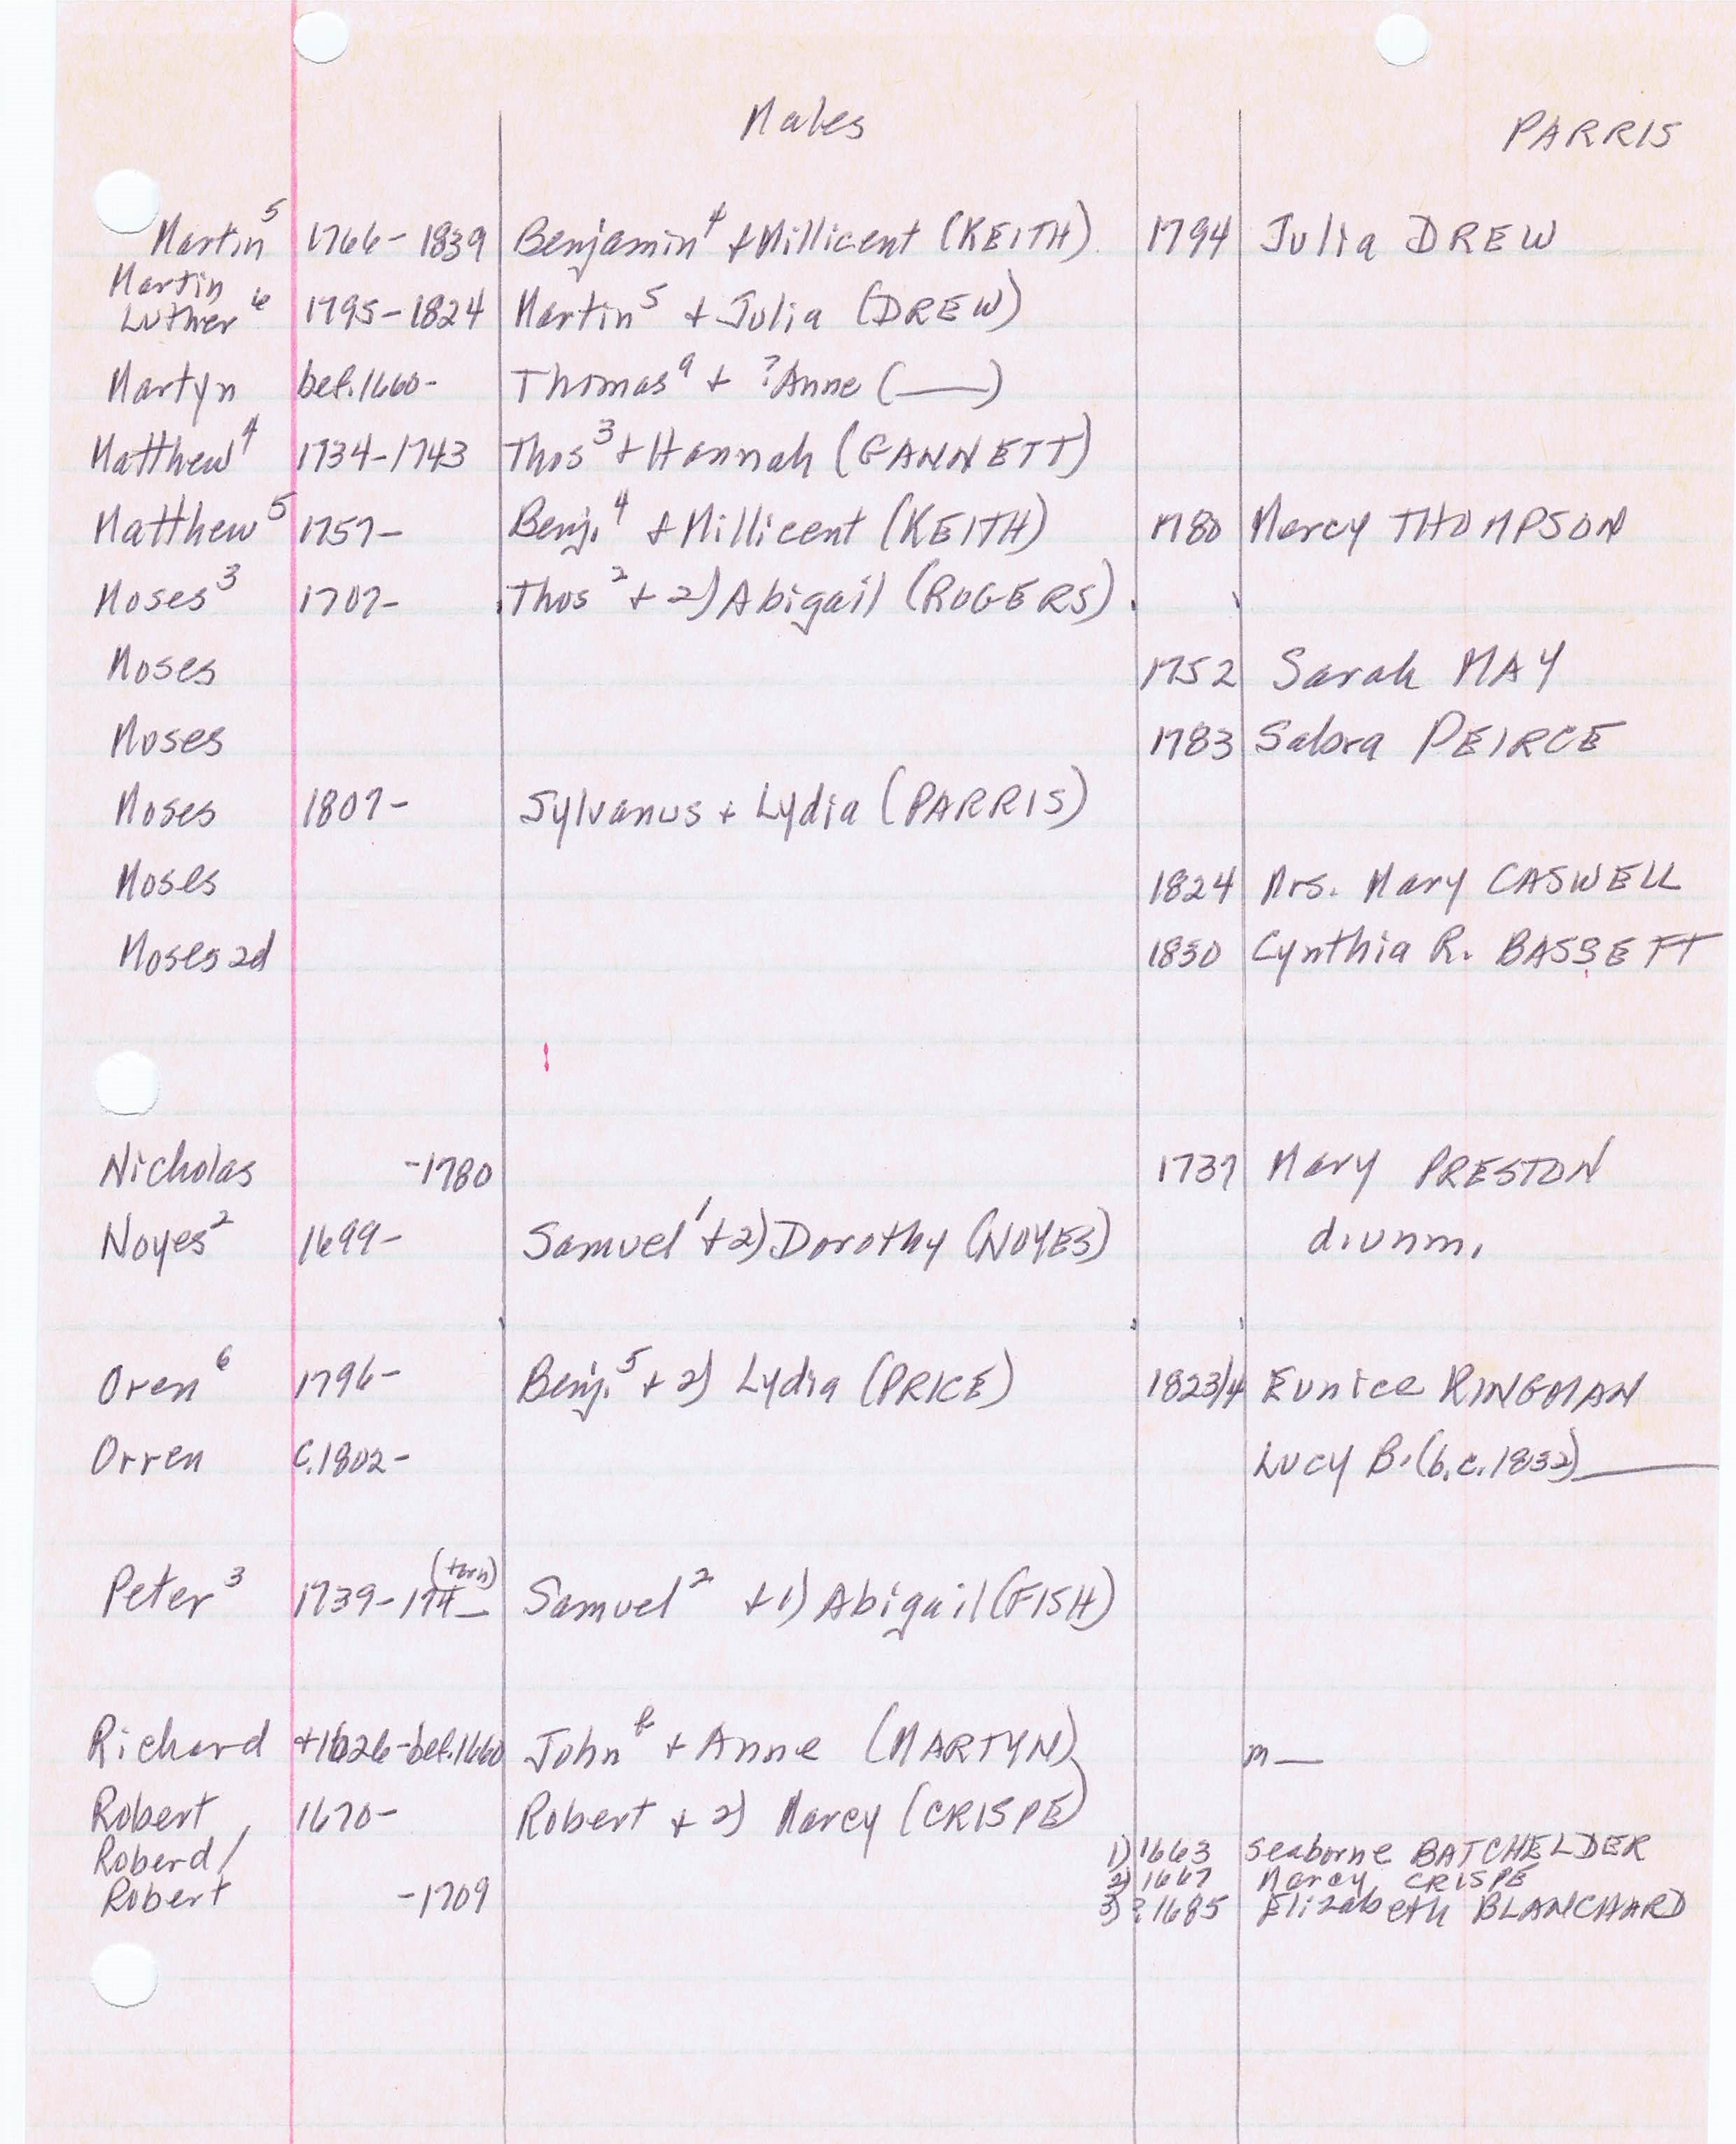 Males
PARRIS
Martin⁵ 1766-1839 Benjamin⁴ + Millicent (KEITH) 1794 Julia DREW
Martin
Luther⁶ 1795-1824 Martin⁵ + Julia (DREW)
Martyn bef.1660- Thomasᵃ + ?Anne (___)
Matthew⁴ 1734-1743 Thos³ + Hannah (GANNETT)
Matthew⁵ 1757- Benj.⁴ + Millicent (KEITH) 1780 Mercy THOMPSON
Moses³ 1707- Thos² + 2) Abigail (ROGERS)
Moses 1752 Sarah MAY
Moses 1783 Sabra PEIRCE
Moses 1807- Sylvanus + Lydia (PARRIS)
Moses 1824 Mrs. Mary CASWELL
Moses 2d 1830 Cynthia R. BASSETT
Nicholas -1780 1737 Mary PRESTON
Noyes² 1699- Samuel¹ + 2) Dorothy (NOYES) d.unm.
Oren⁶ 1796- Benj.⁵ + 2) Lydia (PRICE) 1823/4 Eunice RINGMAN
Orren c.1802- Lucy B. (b.c.1832) ____
(torn)
Peter³ 1739-174_ Samuel² + 1) Abigail (FISH)
Richard +1626-bef.1660 John + Anne (MARTYN) m__
Robert 1670- Robert + 2) Marcy (CRISPE)
Roberd/ 1) 1663 Seaborne BATCHELDER
2) 1667 Marcy CRISPE
Robert -1709 3) ?1685 Elizabeth BLANCHARD